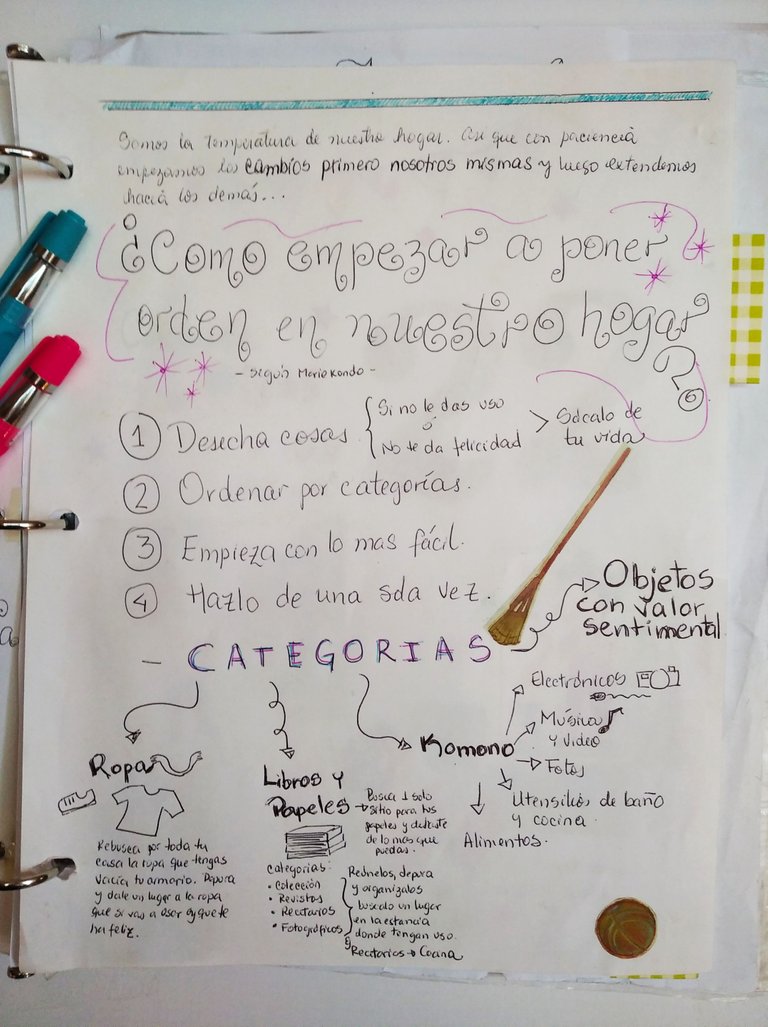 Somos la temperatura de nuestro hogar. Asi que con paciencia
empezamos los cambios primero nosotros mismas y luego extendemos
hacia los demás...
¿Como empezar a poner
orden en nuestro hogar
?
- según Marie Kondo -
1 Desecha cosas { Si no le das uso
ó
No te da felicidad
> Sácalo de
tu vida
2 Ordenar por categorías.
3 Empieza con lo mas fácil.
4 Hazlo de una sola vez.
Objetos
con valor
sentimental
- CATEGORIAS
Ropa
Rebusca por toda tu
casa la ropa que tengas
vacía tu armario. Depura
y dale un lugar a la ropa
que si vas a usar y que te
ha feliz.
Libros y
Papeles
→ Busca 1 solo
sitio para tus
papeles y deshaste
de lo mas que
puedas.
Categorias:
• Colección
• Revistas
• Recetarios
• Fotográficos
Reúnelos, depura
y organizalos
buscalo un lugar
en la estancia
donde tengan uso.
Ej
Recetarios → Cocina
Komono
Electrónicos
Música
y Video
→ Fotos
Utensilios de baño
y cocina.
Alimentos.